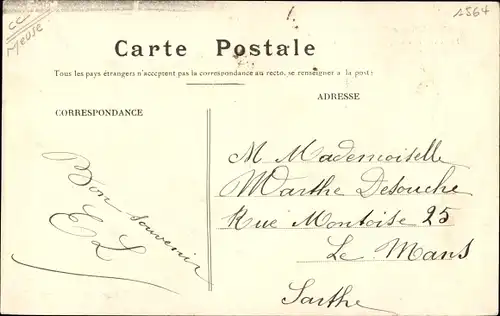 cc
Meuse
1564
Carte Postale
Tous les pays étrangers n'acceptent pas la correspondance au recto, se renseigner à la poste
CORRESPONDANCE
ADRESSE
Bon souvenir
EL
M Mademoiselle
Marthe Desouche
Rue Montoise 25
Le Mans
Sarthe